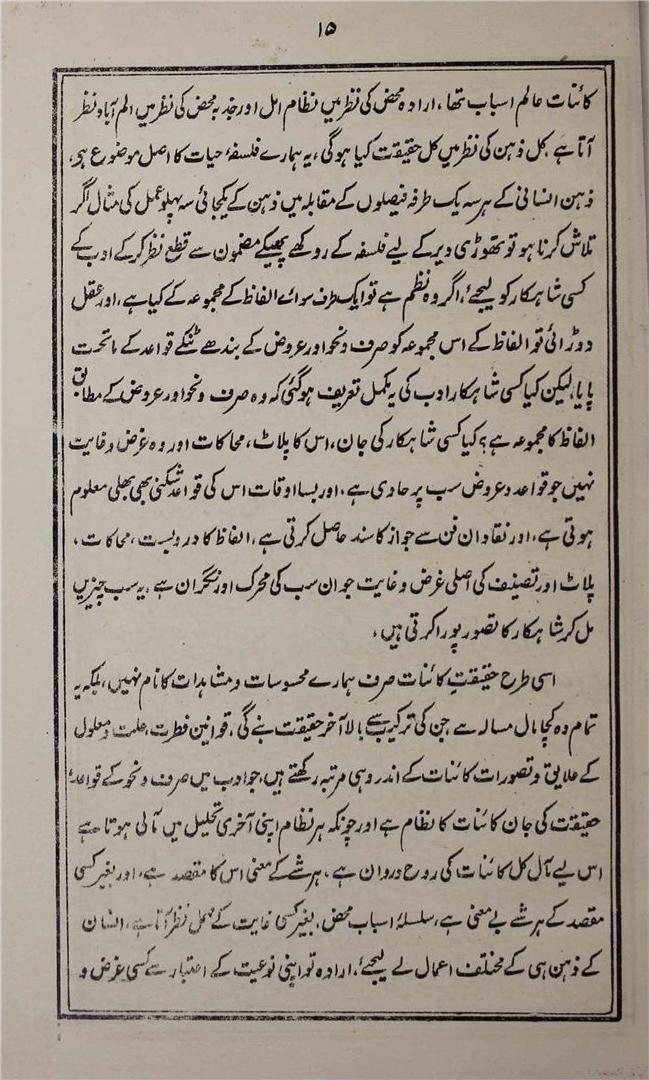 ۱۵
کائنات عالم اسباب تھا، ارادہ محض کی نظر میں نظام امل اور جذبہ محض کی نظر میں الم آباد نظر
آتا ہے کل ذہن کی نظر میں کل حقیقت کیا ہوگی، یہ ہمارے فلسفۂ حیات کا اصل موضوع ہی،
ذہن انسانی کے ہر سہ یک طرفہ فیصلوں کے مقابلہ میں ذہن کے یکجائی سہ پہلو عمل کی مثال اگر
تلاش کرنا ہو تو تھوڑی دیر کے لیے فلسفہ کے روکھے پھیکے مضمون سے قطع نظر کر کے ادب کے
کسی شاہکار کو لیجئے، اگر وہ نظم ہے تو ایک طرف سوائے الفاظ کے مجموعہ کے کیا ہے، اور عقل
دوڑائی تو الفاظ کے اس مجموعہ کو صرف و نحو اور عروض کے بندھے ٹنکے قواعد کے ماتحت
پایا، لیکن کیا کسی شاہکار ادب کی یہ مکمل تعریف ہوگئی کہ وہ صرف و نحو اور عروض کے مطابق
الفاظ کا مجموعہ ہے؟ کیا کسی شاہکار کی جان، اس کا پلاٹ، محاکات اور وہ غرض و غایت
نہیں جو قواعد و عروض سب پر حاوی ہے، اور بسا اوقات اس کی قواعد شکنی بھی بھلی معلوم
ہوتی ہے، اور نقادان فن سے جواز کا سند حاصل کرتی ہے، الفاظ کا دروبست، محاکات،
پلاٹ اور تصنیف کی اصلی غرض و غایت جو ان سب کی محرک اور نگران ہے، یہ سب چیزیں
مل کر شاہکار کا تصور پورا کرتی ہیں،
اسی طرح حقیقتِ کائنات صرف ہمارے محسوسات و مشاہدات کا نام نہیں، بلکہ یہ
تمام وہ کچا مال مسالہ ہے جن کی ترکیب سے بالآخر حقیقت بنے گی، قوانین فطرت، علت و معلول
کے علایق و تصورات کائنات کے اندر وہی مرتبہ رکھتے ہیں، جو ادب میں صرف و نحو کے قواعد،
حقیقت کی جان کائنات کا نظام ہے اور چونکہ ہر نظام اپنی آخری تحلیل میں مآلی ہوتا ہے
اس لیے مآل کل کائنات کی روح درواں ہے، ہر شے کے معنی اس کا مقصد ہے، اور بغیر کسی
مقصد کے ہر شے بے معنی ہے، سلسلۂ اسباب محض، بغیر کسی غایت کے مہمل نظر آتا ہے، انسان
کے ذہن ہی کے مختلف اعمال لے لیجئے، ارادہ تو اپنی نوعیت کے اعتبار سے کسی غرض و